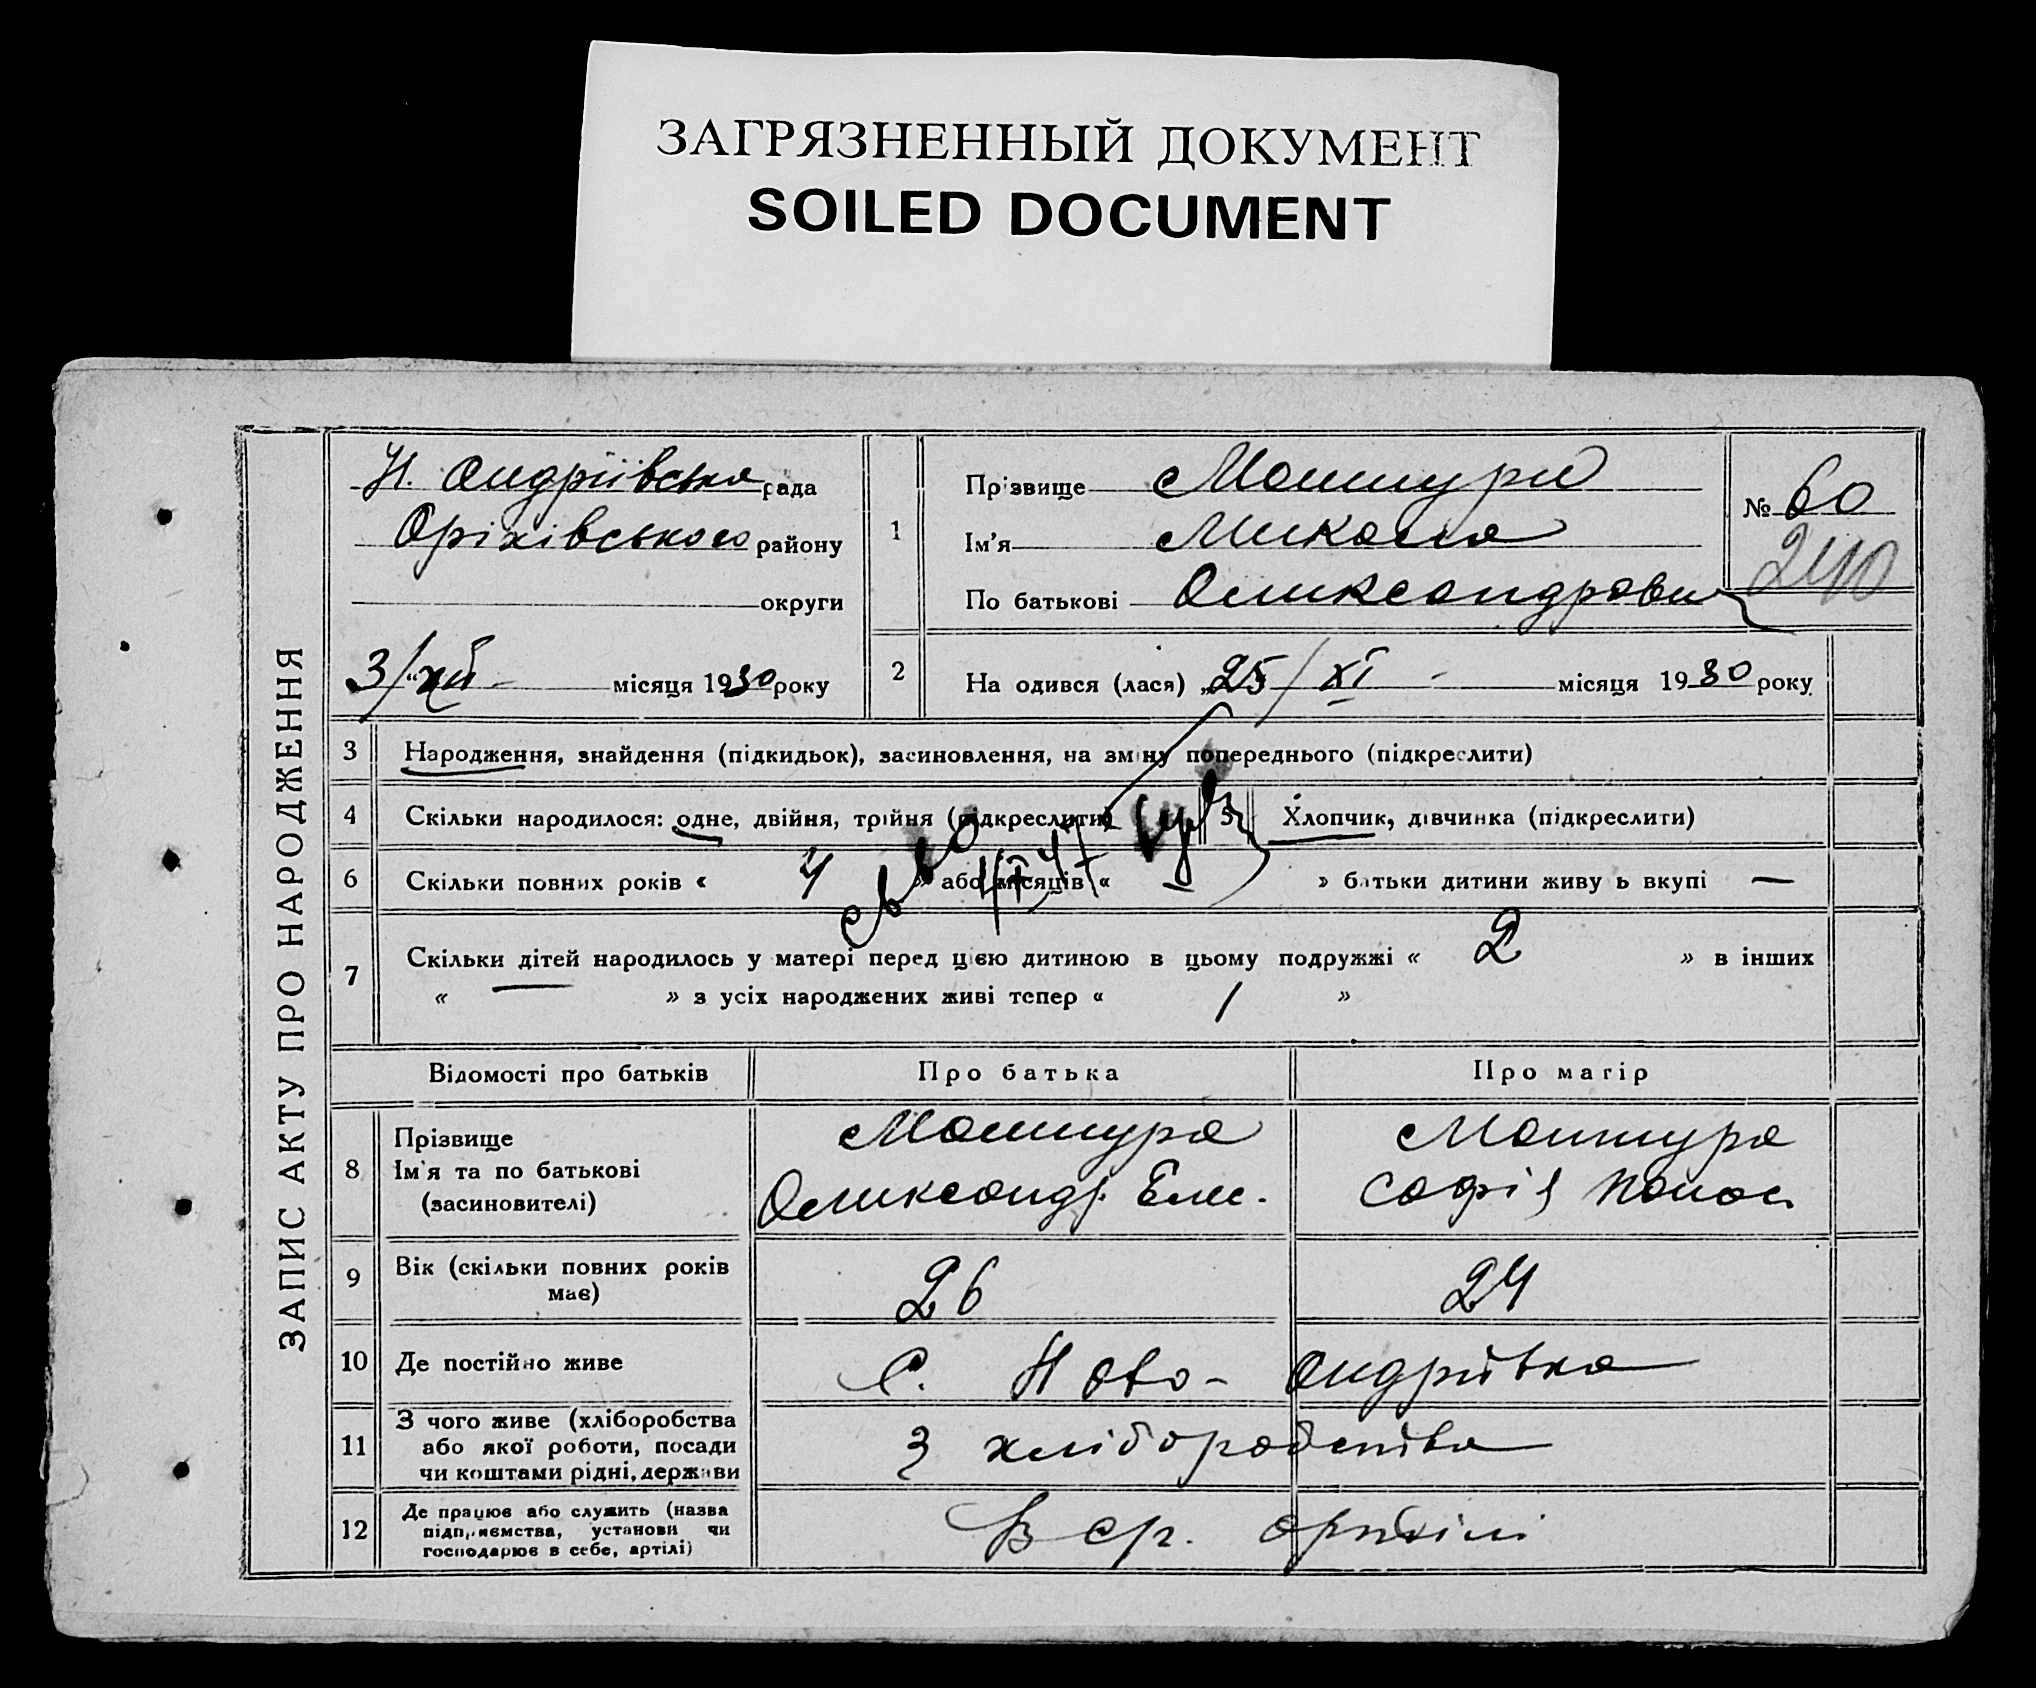 ЗАГРЯЗНЕННЫЙ ДОКУМЕНТ
SOILED DOCUMENT
ЗАПИС АКТУ ПРО НАРОДЖЕННЯ
Н. Андріївська рада
Оріхівського району
округи
3/XII місяця 1930 року
1
Прізвище
Ім'я Микола
По батькові Олександрович
№ 60
240
2 На одився (лася) „25/XI місяця 1930 року
3 Народження, знайдення (підкидьок), засиновлення, на зміну попереднього (підкреслити)
4 Скільки народилося: одне, двійня, трійня (підкреслити)
5 Хлопчик, дівчинка (підкреслити)
6 Скільки повних років « 4 » або місяців « » батьки дитини живу ь вкупі —
7 Скільки дітей народилось у матері перед цією дитиною в цьому подружжі « 2 » в інших
« » з усіх народжених живі тепер « 1 »
Відомості про батьків
Про батька
Про матір
8 Прізвище
Ім'я та по батькові
(засиновителі)
Олександр
Софія
9 Вік (скільки повних років
має)
26
24
10 Де постійно живе
с. Ново-Андріївка
11 З чого живе (хліборобства
або якої роботи, посади
чи коштами рідні, держави
З хліборобства
12 Де працює або служить (назва
підприємства, установи чи
господарює в себе, артілі)
В ср. артілі